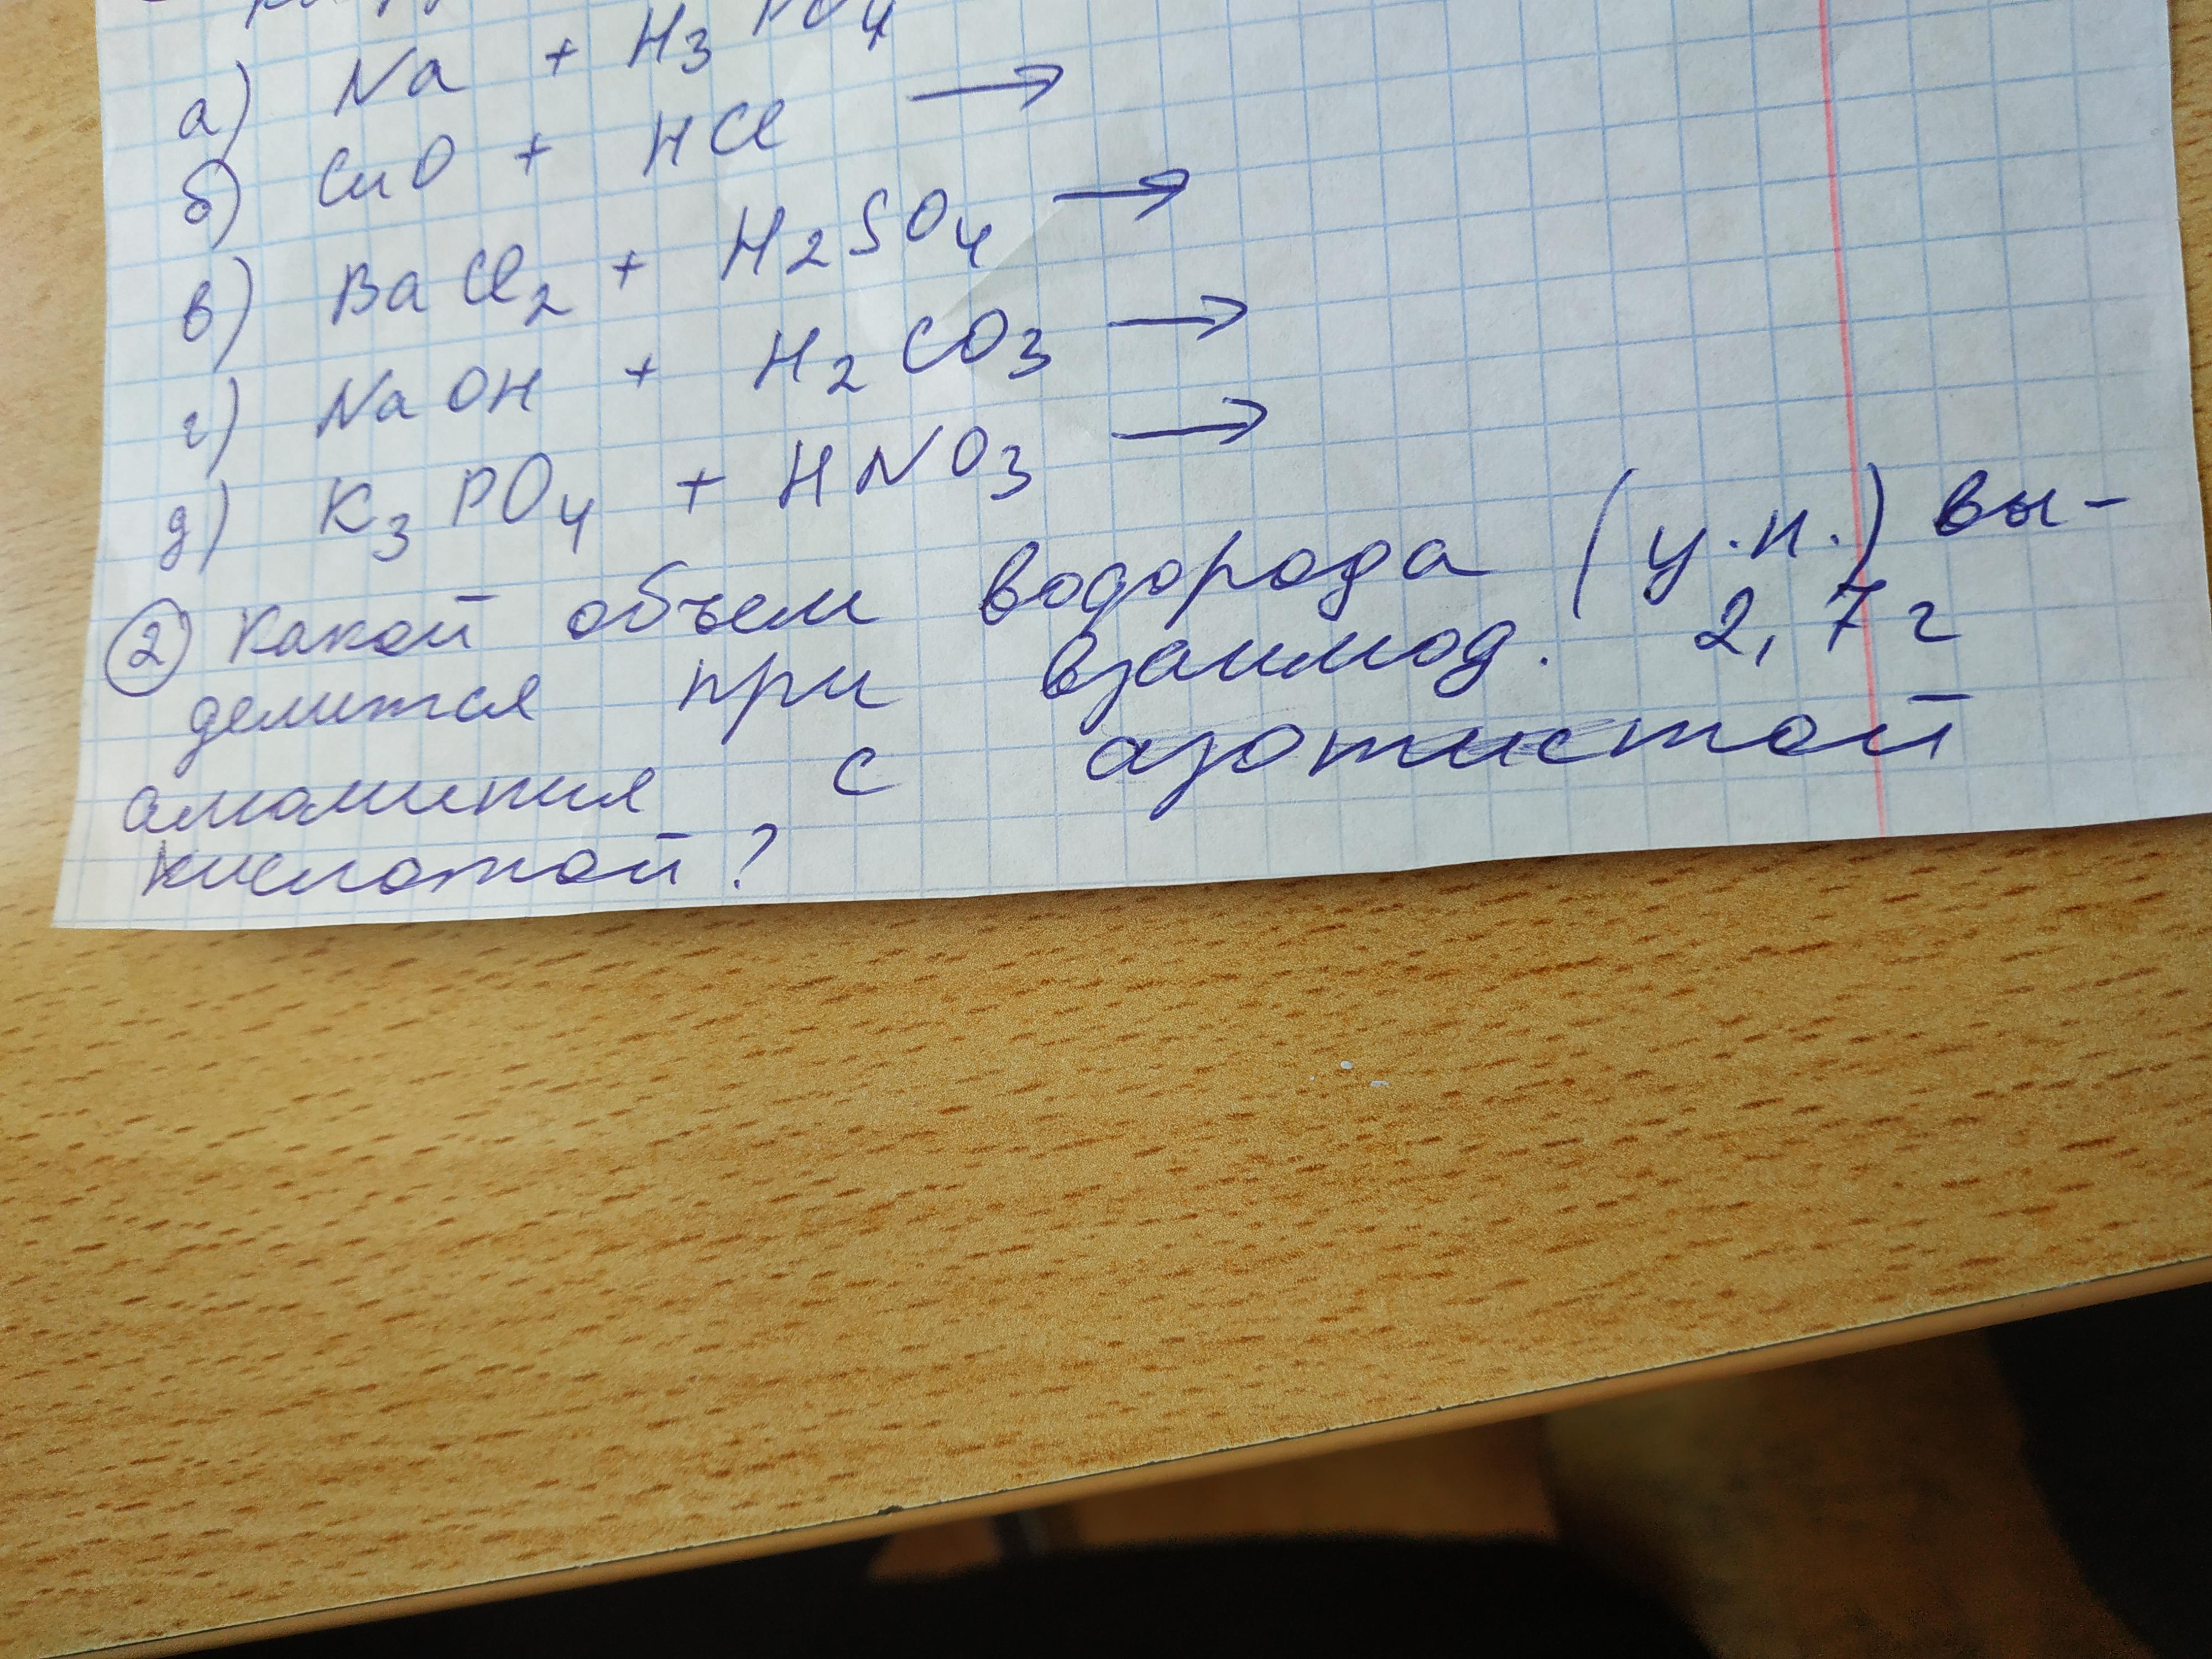 а) Na + H3PO4
б) CuO + HCl →
в) BaCl2 + H2SO4 →
г) NaOH + H2CO3 →
д) K3PO4 + HNO3 →
② Какой объем водорода (у.н.) вы-
делится при взаимод. 2,7 г
алюминия с азотистой
кислотой?